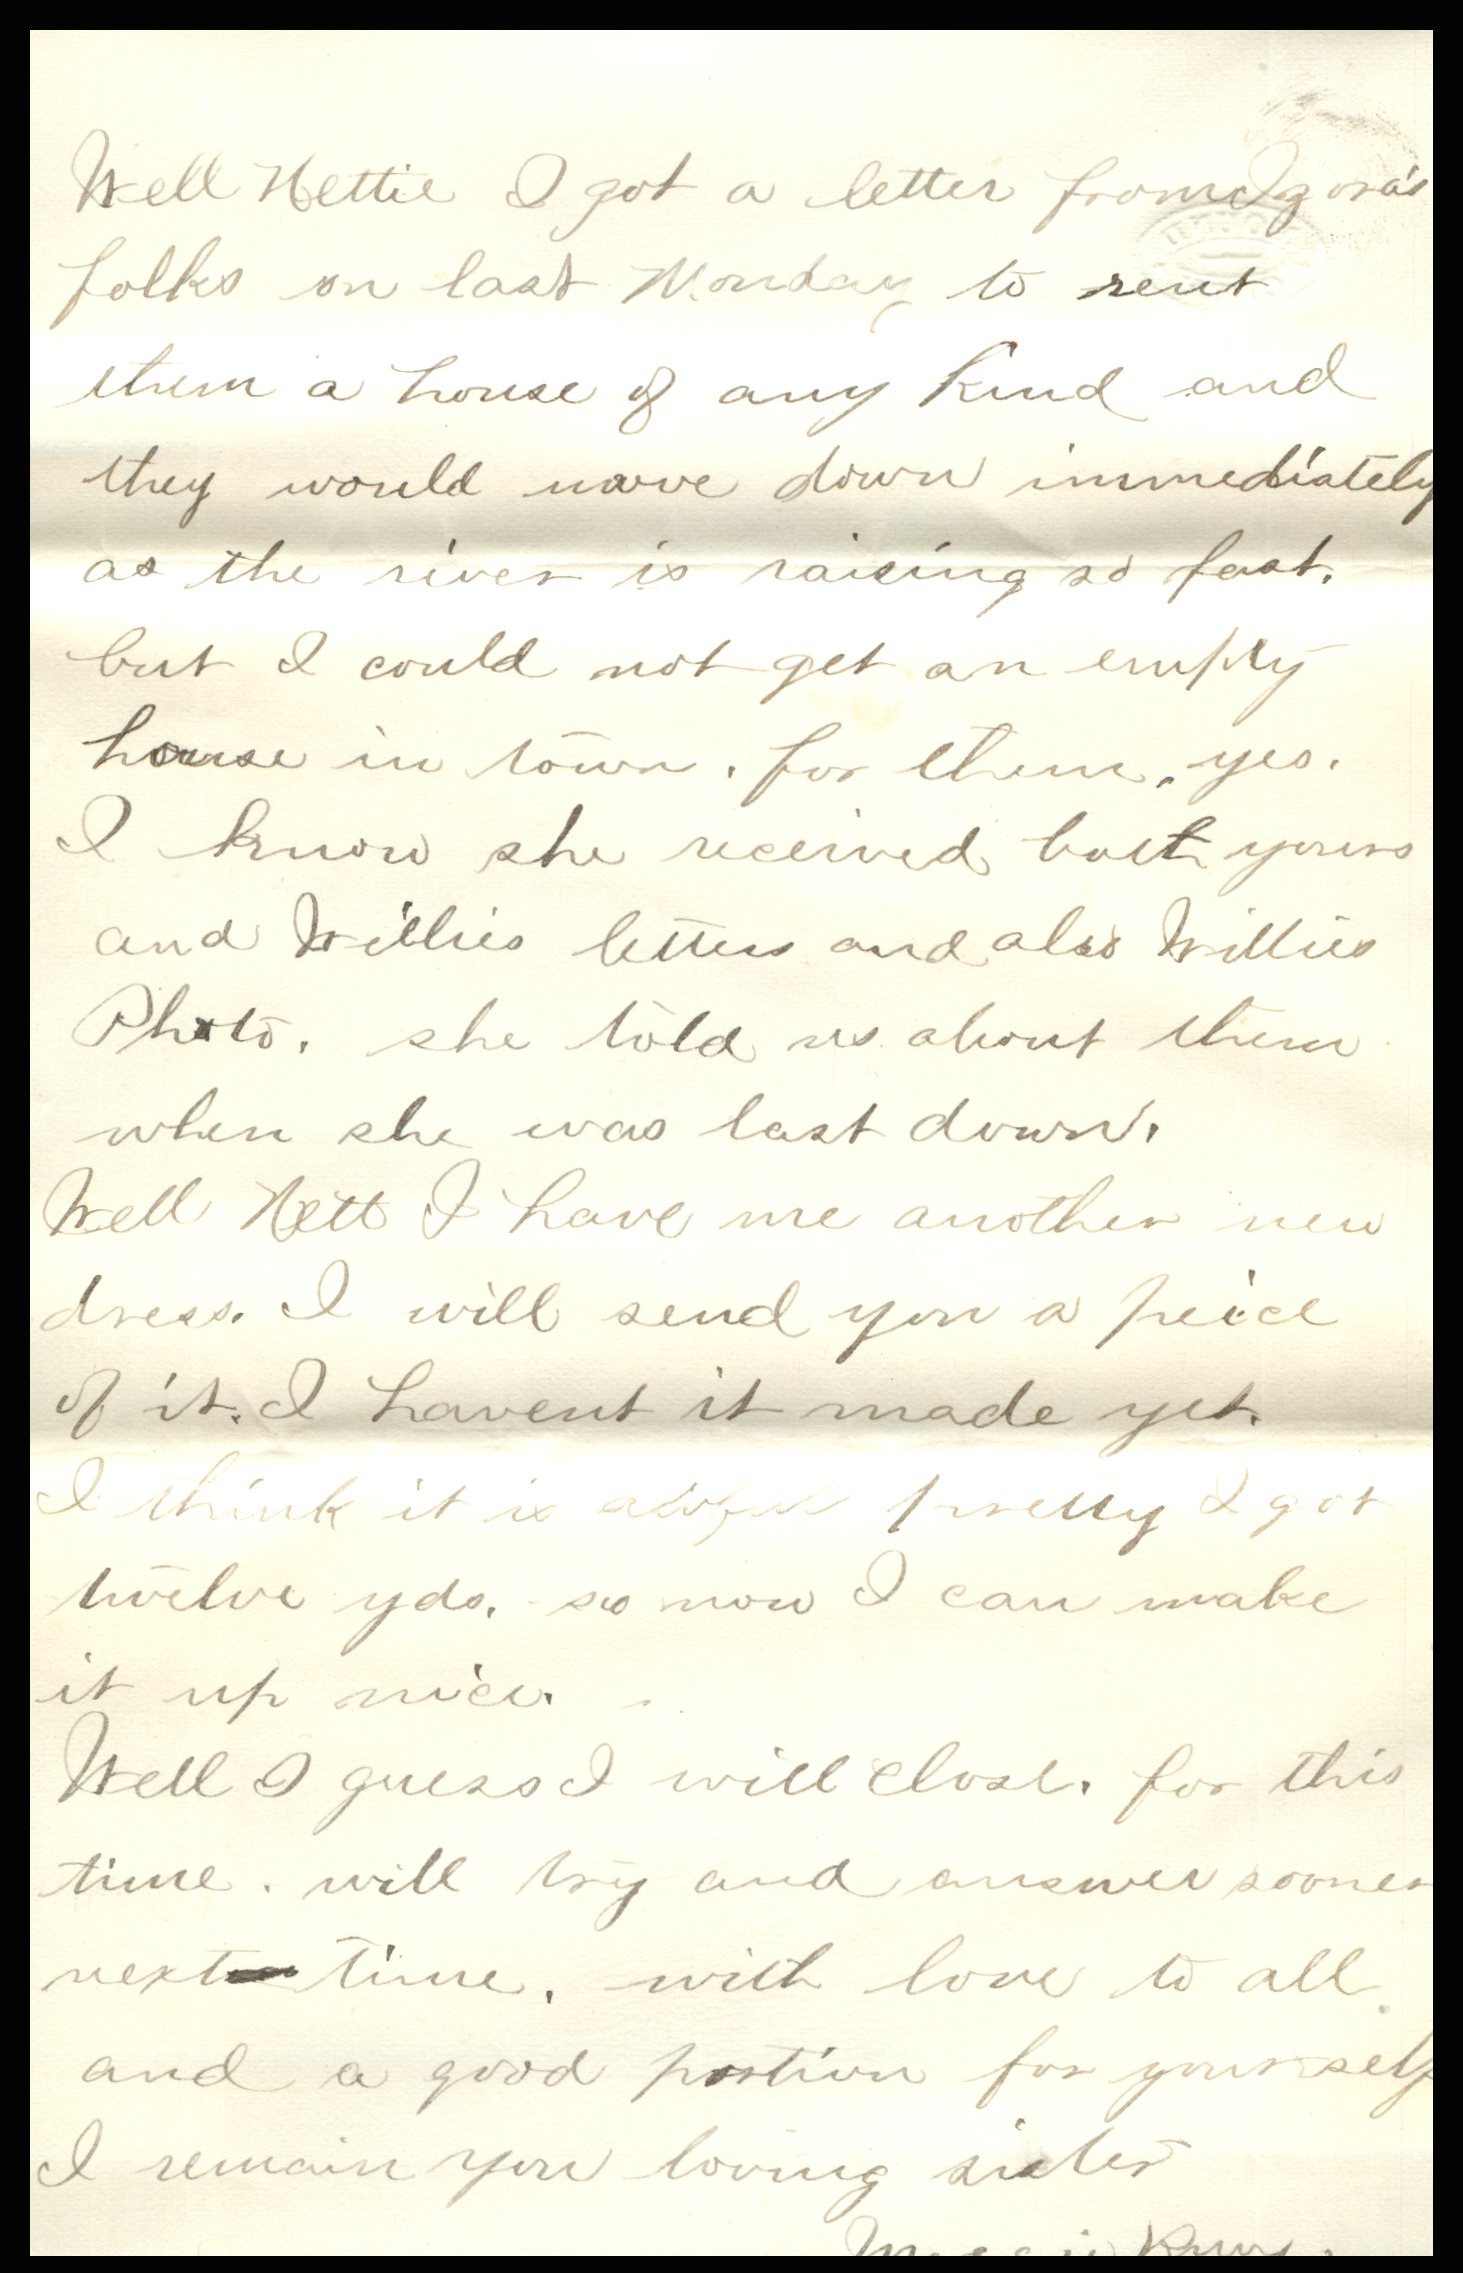 Well Nettie I got a letter from Igora's
folks on last Monday to rent
them a house of any kind and
they would move down immediately
as the river is raising so fast.
but I could not get an empty
house in town. for them. yes.
I know she received both yours
and Willies letters and also Willies
Photo. she told us about them
when she was last down.
Well Nett I have me another new
dress. I will send you a peice
of it. I havent it made yet.
I think it is awful pretty I got
twelve yds. so now I can make
it up nice.
Well I guess I will close. for this
time. will try and answer sooner
next time. with love to all
and a good portion for yourself
I remain you loving sister
Maggie